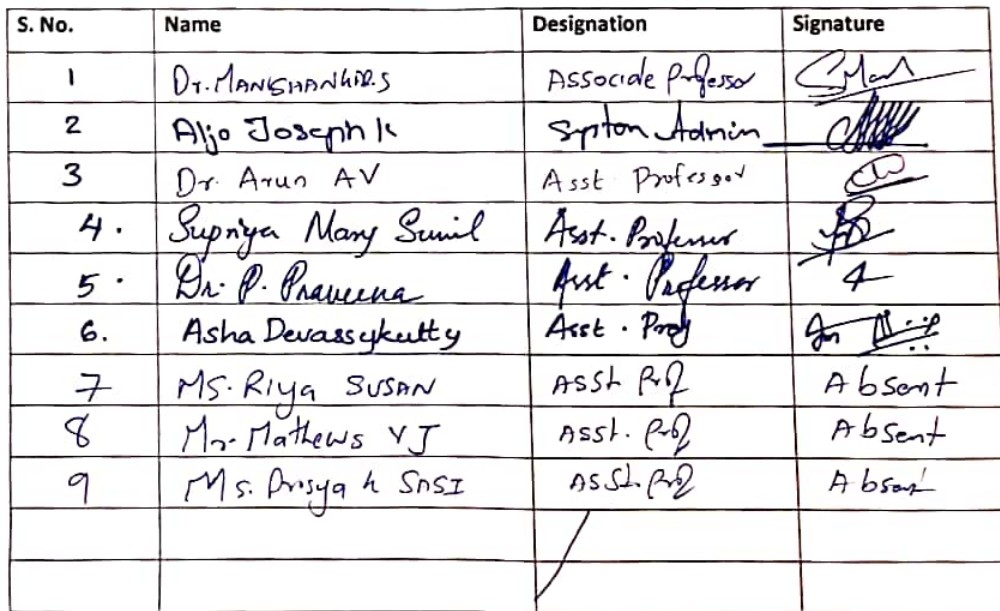 S. No. Name Designation Signature
1 Dr. Associate Professor
2 Aljo Joseph K System Admin
3 Dr. Arun AV Asst Professor
4. Supriya Mary Sunil Asst. Professor
5. Dr. P. Praveena Asst. Professor
6. Asha Devassykutty Asst. Prof
7 MS. Riya SUSAN ASSt Prof Absent
8 Mr. Mathews V J ASSt. Prof Absent
9 Ms. K SASI ASSt. Prof Absent